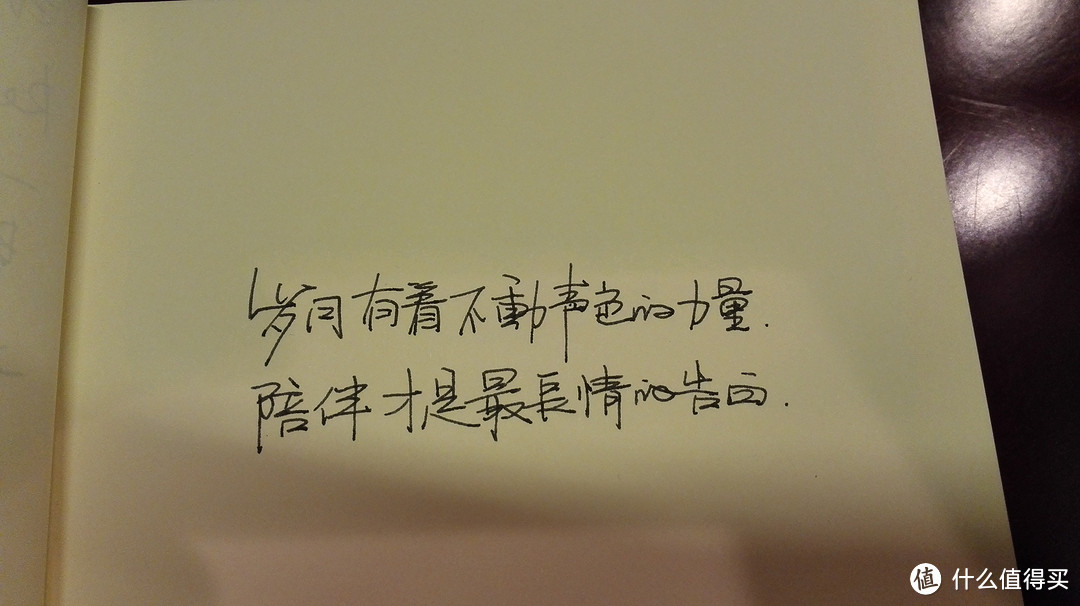 岁月有着不動声色的力量.
陪伴才是最長情的告白.
值 什么值得买